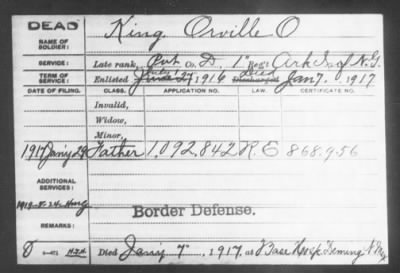 DEAD
NAME OF SOLDIER: King Orville O
SERVICE: Late rank, Pvt Co. D, 1" Reg't Ark Inf N.G.
TERM OF SERVICE: Enlisted 1916 Died Jan 7. 1917
DATE OF FILING. CLASS. APPLICATION NO. LAW. CERTIFICATE NO.
Invalid,
Widow,
Minor,
1917 Jan'y 29 Father 1,092,842 R.E 868,956
ADDITIONAL SERVICES:
Border Defense.
REMARKS:
Died Jan'y 7", 1917, at Base Hosp Deming N My